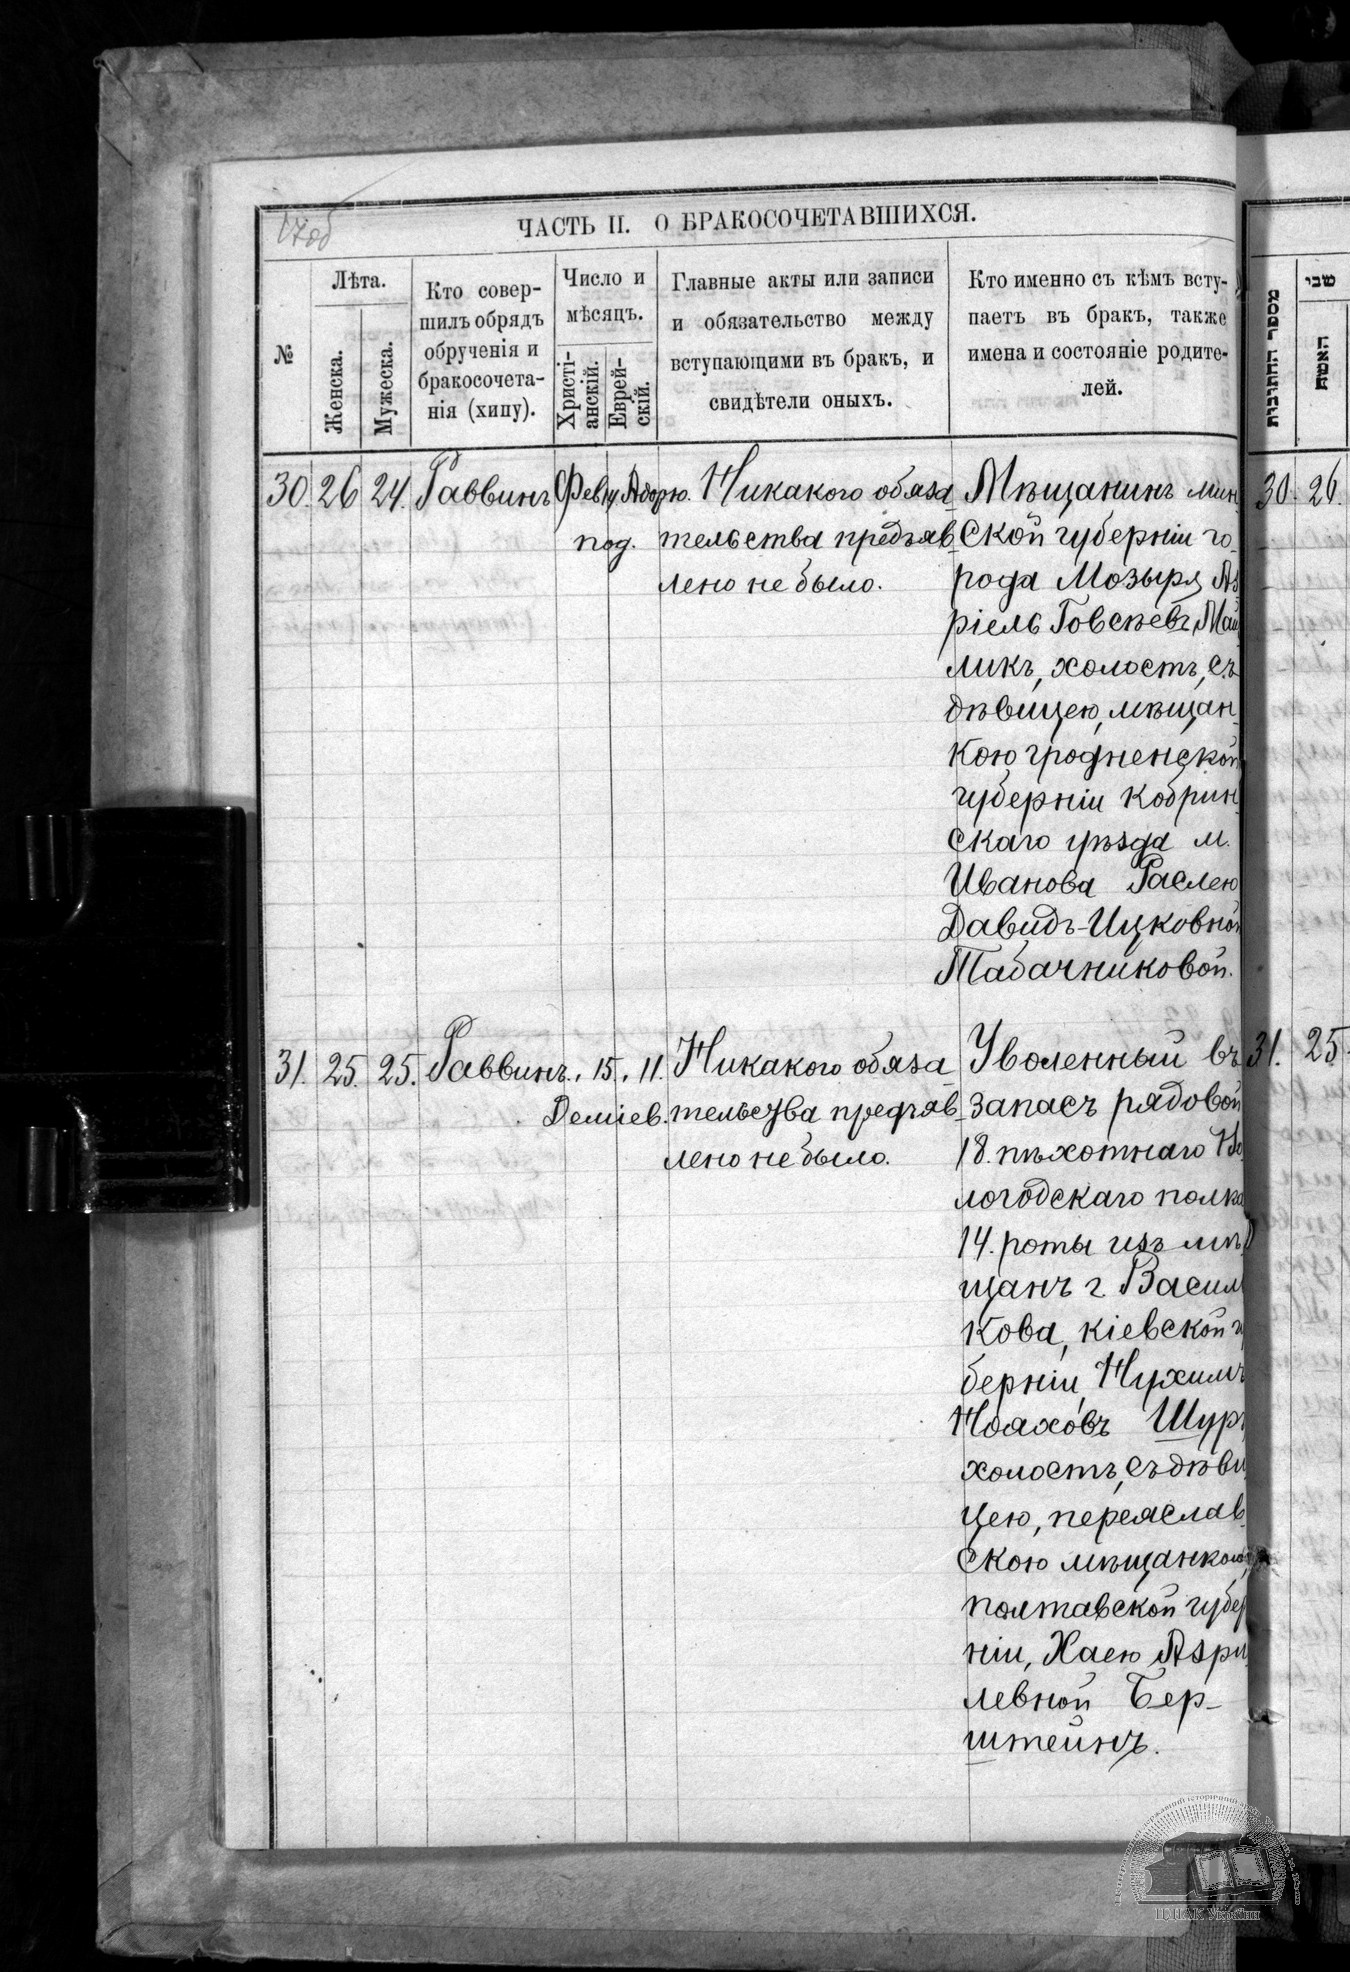 17об
ЧАСТЬ II. О БРАКОСОЧЕТАВШИХСЯ.
№
Лѣта.
Женска.
Мужеска.
Кто совер-
шилъ обрядъ
обрученія и
бракосочета-
нія (хипу).
Число и
мѣсяцъ.
Христі-
анскій.
Еврей-
скій.
Главные акты или записи
и обязательство между
вступающими въ бракъ, и
свидѣтели оныхъ.
Кто именно съ кѣмъ всту-
паетъ въ бракъ, также
имена и состояніе родите-
лей.
מספר החתונות
שני
האשה
30. 26 24. Раввинъ
под.
Никакого обяза-
тельства предъяв-
лено не было.
Мѣщанинъ мин-
ской губерніи го-
рода Мозыря Аз
ріель Говсѣевъ Май
ликъ, холостъ, съ
дѣвицею, мѣщан-
кою гродненской
губерніи Кобрин-
скаго уѣзда м.
Иванова Раслею
Давидъ-Ицковной
Табачниковой.
30. 26.
31. 25. 25. Раввинъ. 15. 11.
Деміев.
Никакого обяза-
тельства предъяв-
лено не было.
Уволенный въ
запасъ рядовой
18. пѣхотнаго Во
логодскаго полка
14. роты изъ мѣ
щанъ г. Василь
кова, кіевской гу
берніи, Нухимъ
Ноаховъ Шур
холостъ, съ дѣви
цею, переяслав-
скою мѣщанкою,
полтавской губер
ніи, Хаею Азри
левной Бер-
штейнъ.
31. 25.
ЦДІАК України